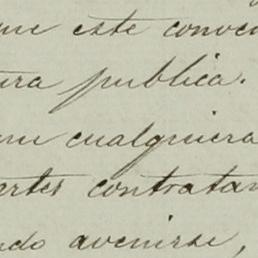 que este conven
ura publica.
um cualquiera
artes contratan
ndo avenirse,